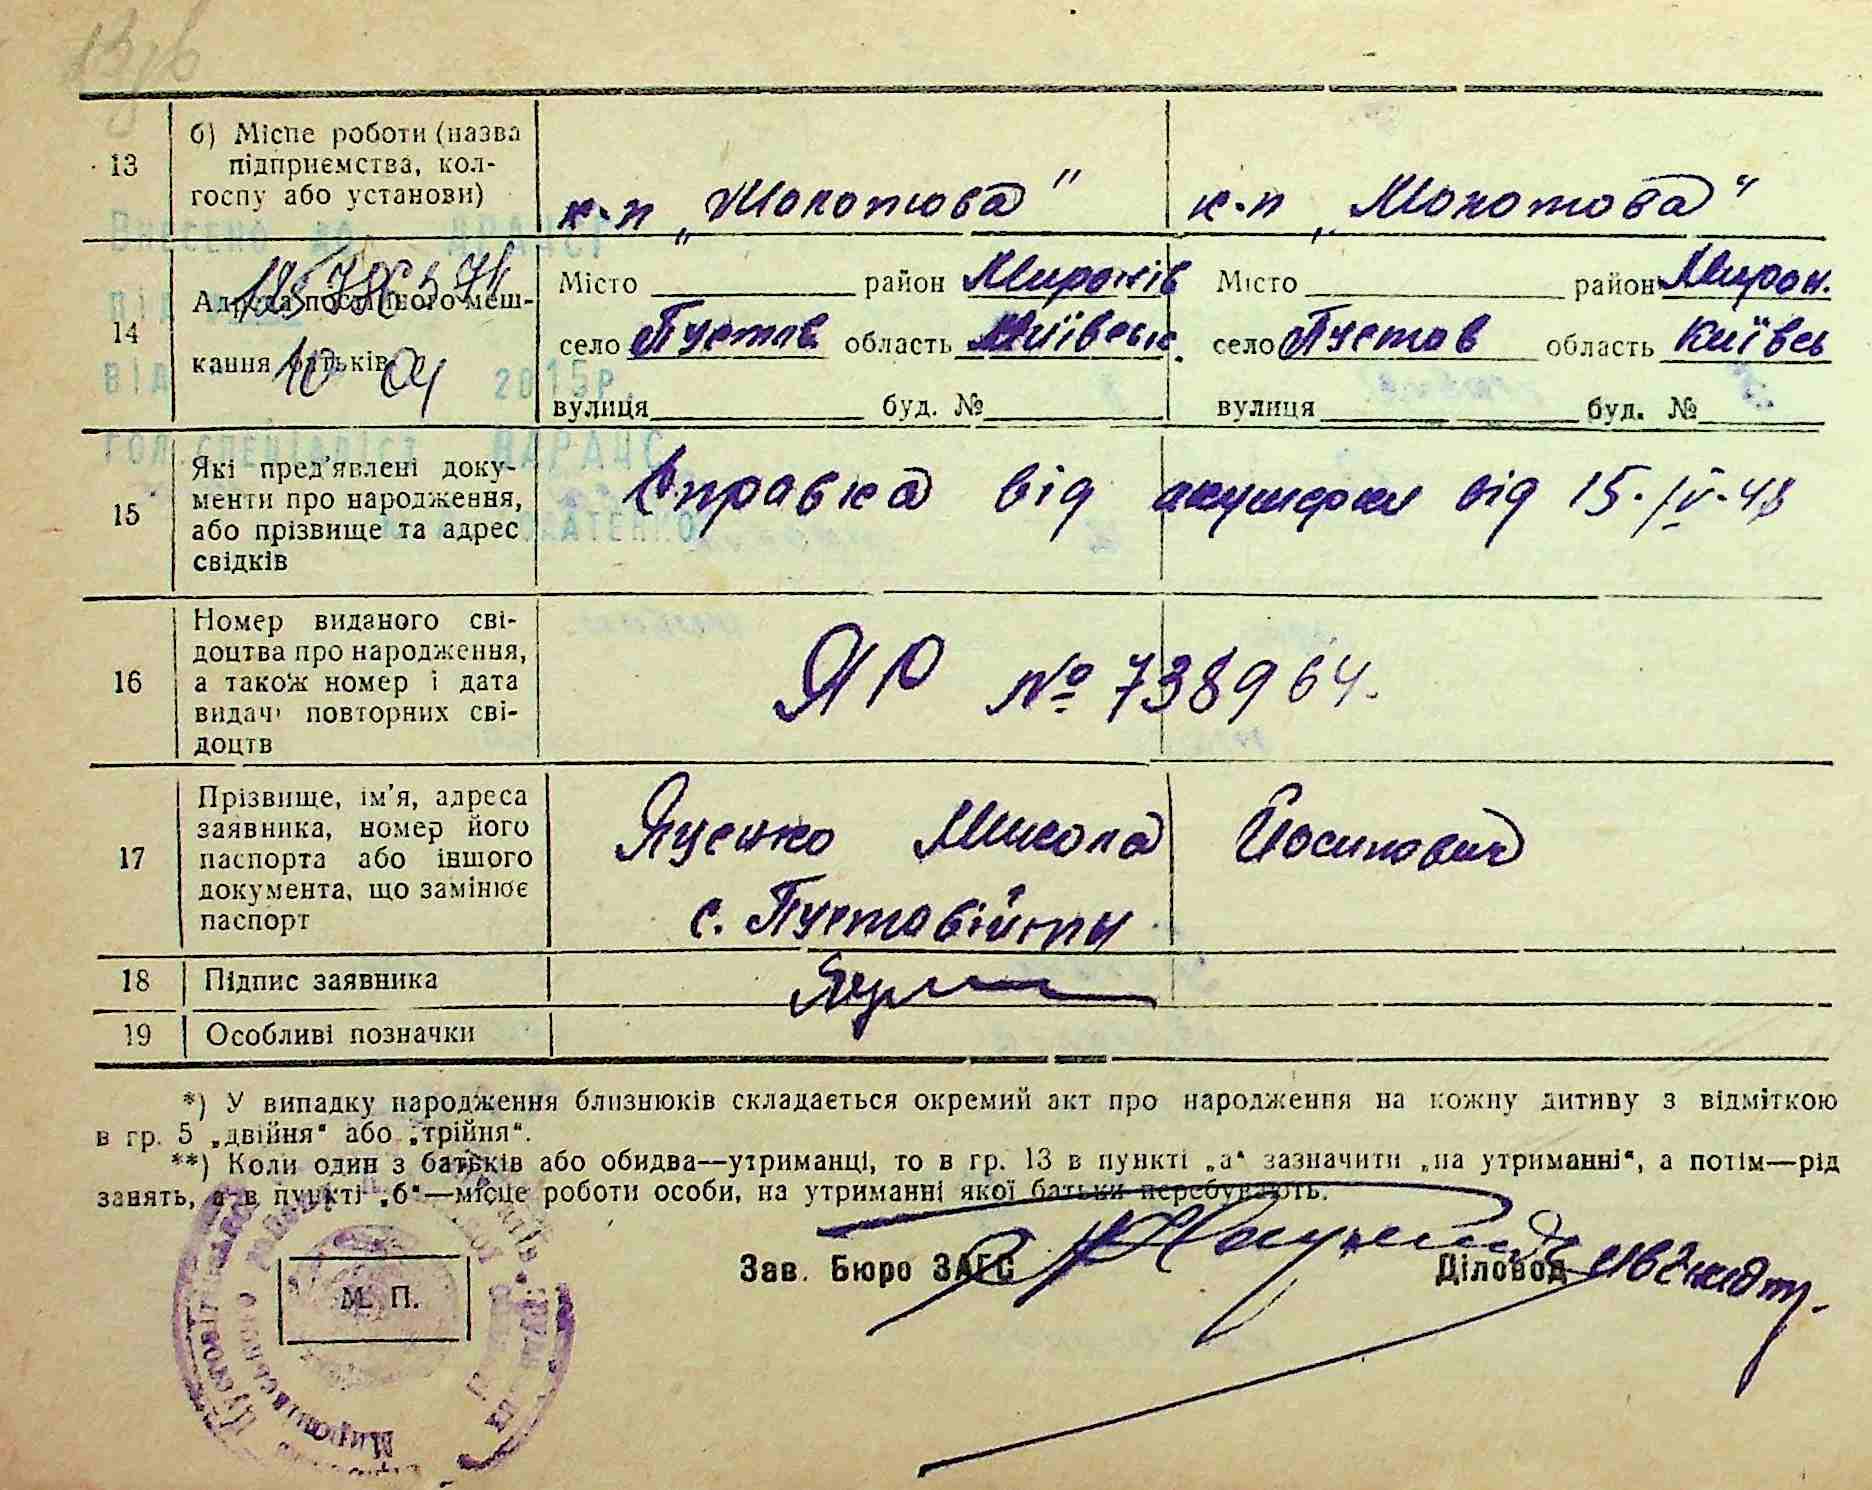 13 б) Місце роботи (назва підприємства, колгоспу або установи) к-п „Молотова" к-п „Молотова"
Внесено до ДРАЦСГ
14 Адреса постійного мешкання батьків
10 04 2015р.
Місто район Миронів Місто район Мирон.
село Пустов область Київськ. село Пустов область Київсь
вулиця буд. № вулиця буд. №
15 Які пред'явлені документи про народження, або прізвище та адрес свідків
Справка від акушерки від 15-IV-48
16 Номер виданого свідоцтва про народження, а також номер і дата видачі повторних свідоцтв
ЯЮ № 738964.
17 Прізвище, ім'я, адреса заявника, номер його паспорта або іншого документа, що замінює паспорт
Яценко Микола Йосипович
с. Пустовійти
18 Підпис заявника
19 Особливі позначки
*) У випадку народження близнюків складається окремий акт про народження на кожну дитину з відміткою
в гр. 5 „двійня" або „трійня".
**) Коли один з батьків або обидва—утриманці, то в гр. 13 в пункті „а" зазначити „на утриманні", а потім—рід
занять, а в пункті „б"—місце роботи особи, на утриманні якої батьки перебувають.
Зав. Бюро ЗАГС Діловод
М. П.